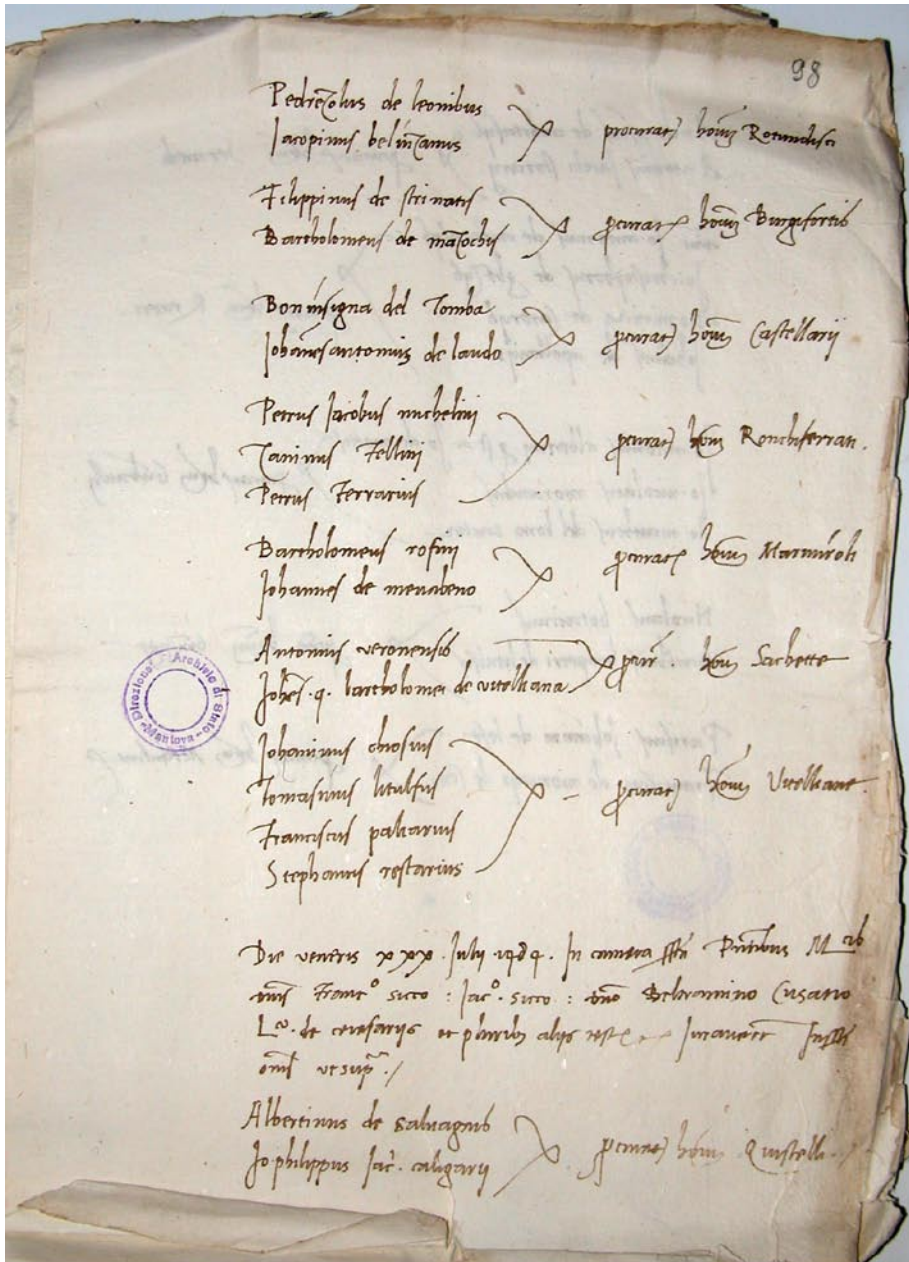 98
Pedrezolus de leonibus
Jacopinus belinzanus
procurat) hoīm Rotundisci
Filippinus de strinatis
Bartholomeus de mazochis
ꝓcurat) hoīm Burgifortis
Boninsigna del Tomba
Johānesantonius de laudo
ꝓcurat) hoīm Castellarij
Petrus Jacobus michelini
Zaninus Fellini
Petrus Ferrarius
ꝓcurat) hoīm Ronchiferrari.
Bartholomeus rofini
Johannes de menabeno
ꝓcurat) hoīm Marmiroli
Antonius veronensis
Johēs .q. bartholomei de vitelliana
hoīm Sachette
Johaninus chosius
Tomasinus litulfus
Franciscus paliarius
Stephanus rostarius
– ꝓcurat) hoīm Vitelliane.
Die veneris xxx. Julij 1484. In camera Pntibus M.cis
Francº sicco : Jacº. sicco : dno Beltramino Cusatro
de cevesarijs et pluribus alijs Juraverunt
ut supra ./
Albertinus de salvagnis
Jo.philippus Jac. caligarij
ꝓcurat) hoīm Quistelli.
Direzione Archivio di Stato
- Mantova -